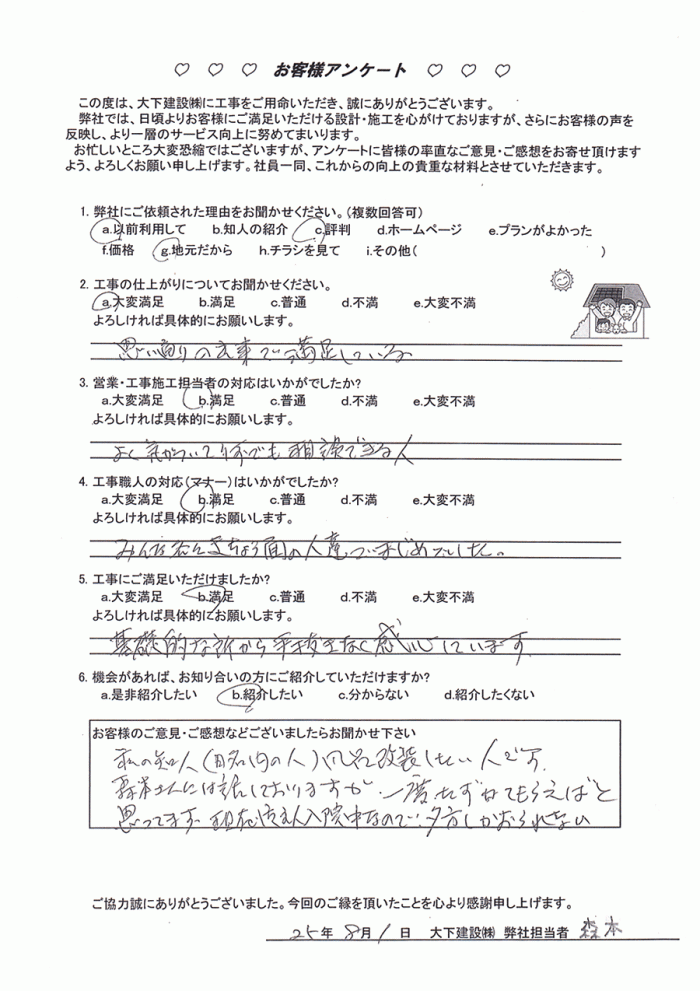 ♡ ♡ ♡ お客様アンケート ♡ ♡ ♡
この度は、大下建設㈱に工事をご用命いただき、誠にありがとうございます。
弊社では、日頃よりお客様にご満足いただける設計・施工を心がけておりますが、さらにお客様の声を
反映し、より一層のサービス向上に努めてまいります。
お忙しいところ大変恐縮ではございますが、アンケートに皆様の率直なご意見・ご感想をお寄せ頂けます
よう、よろしくお願い申し上げます。社員一同、これからの向上の貴重な材料とさせていただきます。
1. 弊社にご依頼された理由をお聞かせください。(複数回答可)
a.以前利用して b.知人の紹介 c.評判 d.ホームページ e.プランがよかった
f.価格 g.地元だから h.チラシを見て i.その他( )
2. 工事の仕上がりについてお聞かせください。
a.大変満足 b.満足 c.普通 d.不満 e.大変不満
よろしければ具体的にお願いします。
思い通りの出来で満足している
3. 営業・工事施工担当者の対応はいかがでしたか?
a.大変満足 b.満足 c.普通 d.不満 e.大変不満
よろしければ具体的にお願いします。
よく気がついて何でも相談できる人
4. 工事職人の対応(マナー)はいかがでしたか?
a.大変満足 b.満足 c.普通 d.不満 e.大変不満
よろしければ具体的にお願いします。
みんなきちょう面の人達でまじめでした。
5. 工事にご満足いただけましたか?
a.大変満足 b.満足 c.普通 d.不満 e.大変不満
よろしければ具体的にお願いします。
基礎的な所から手抜きなく感心しています
6. 機会があれば、お知り合いの方にご紹介していただけますか?
a.是非紹介したい b.紹介したい c.分からない d.紹介したくない
お客様のご意見・ご感想などございましたらお聞かせ下さい
私の知人(町内の人)風呂改装したい人です。
森本さんには話しておりますが、一度たずねてもらえばと
思ってます 現在主人入院中なので夕方しかおられない
ご協力誠にありがとうございました。今回のご縁を頂いたことを心より感謝申し上げます。
25年 8月 1日 大下建設㈱ 弊社担当者 森本